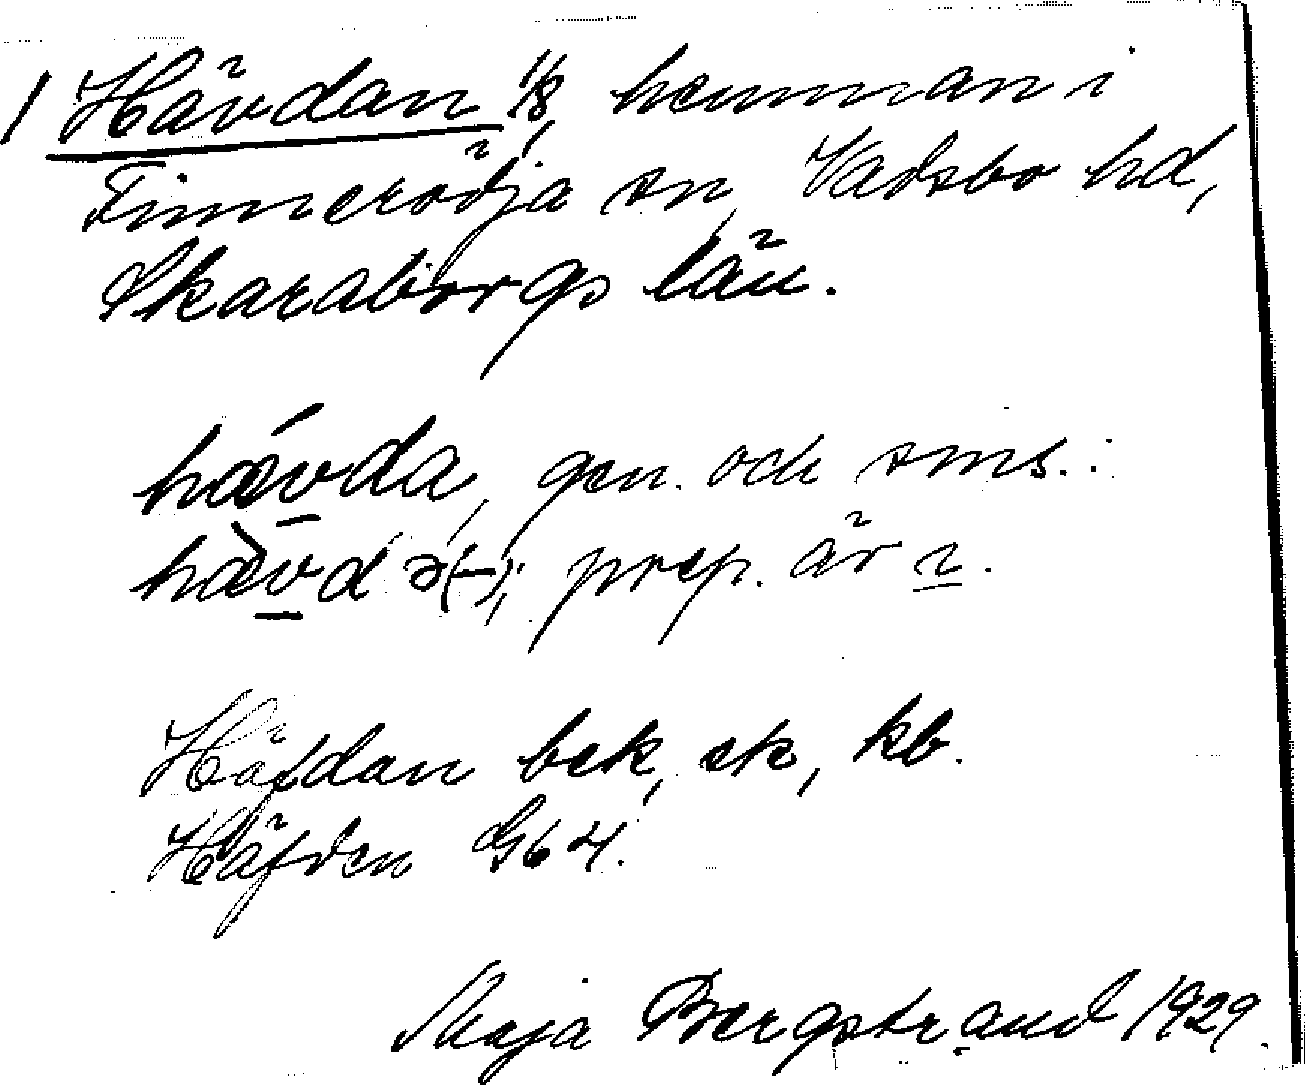 1 Hävdan 1/8 hemman i
Finnerödja sn, Vadsbo hd,
Skaraborgs län.
hǽvda, gen. och sms.:
hæ̀vdə(-); prep. är i.
Häfdan bek, ek, kb.
Häfden Gb 4.
Maja Bergstrand 1929.